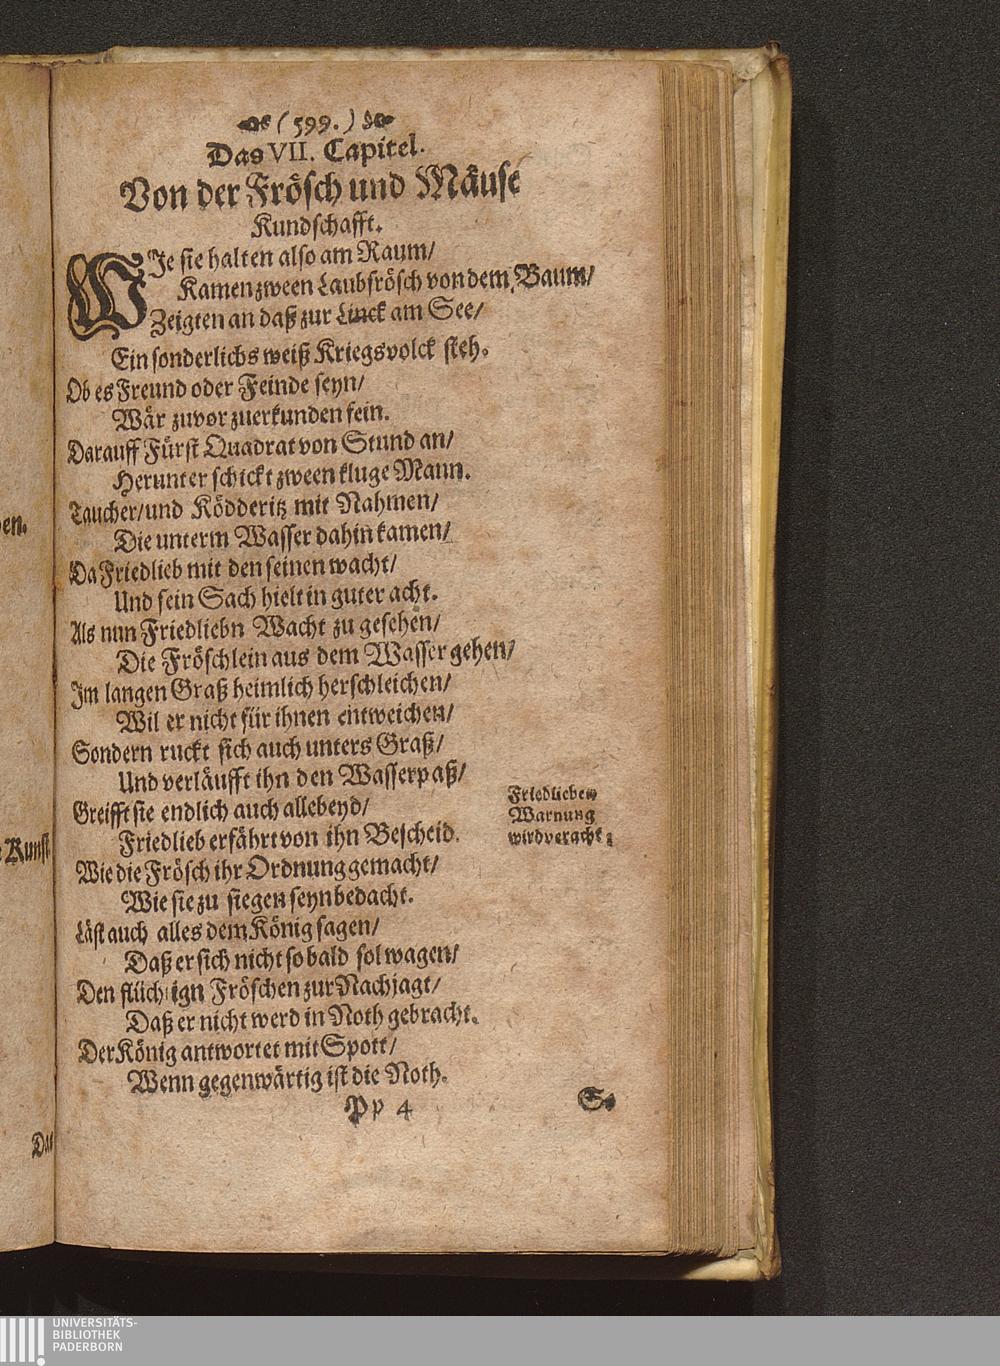 (599.)
Das VII. Capitel.
Von der Frösch und Mäuse
Kundschafft.
WJe sie halten also am Raum/
Kamen zween Laubfrösch von dem Baum/
Zeigten an daß zur Linck am See/
Ein sonderlichs weiß Kriegsvolck steh.
Ob es Freund oder Feinde seyn/
Wär zuvor zuerkunden fein.
Darauff Fürst Quadrat von Stund an/
Herunter schickt zween kluge Mann.
Taucher/und Ködderitz mit Nahmen/
Die unterm Wasser dahin kamen/
Da Friedlieb mit den seinen wacht/
Und sein Sach hielt in guter acht.
Als nun Friedliebn Wacht zu gesehen/
Die Fröschlein aus dem Wasser gehen/
Jm langen Graß heimlich herschleichen/
Wil er nicht für ihnen entweichen/
Sondern ruckt sich auch unters Graß/
Und verläufft ihn den Wasserpaß/
Greifft sie endlich auch allebeyd/
Friedlieb erfährt von ihn Bescheid.
Wie die Frösch ihr Ordnung gemacht/
Wie sie zu siegen seyn bedacht.
Läst auch alles dem König sagen/
Daß er sich nicht so bald sol wagen/
Den flüchtign Fröschen zur Nachjagt/
Daß er nicht werd in Noth gebracht.
Der König antwortet mit Spott/
Wenn gegenwärtig ist die Noth.
Friedlieben
Warnung
wird veracht.
Pp 4
S.
en.
Kunst
Das
UNIVERSITÄTS-
BIBLIOTHEK
PADERBORN